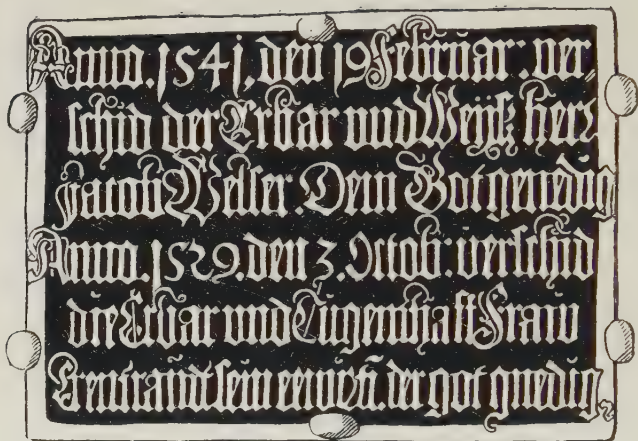 Anno. 1541. den 19 Februar: ver
schid der Erbar und Weijs herr
Jacob Welser. Dem Got genedig
Anno. 1529. den 3. Octob: verschid
die Erbar und Tugenthafft Fraw
sein der got gnedig